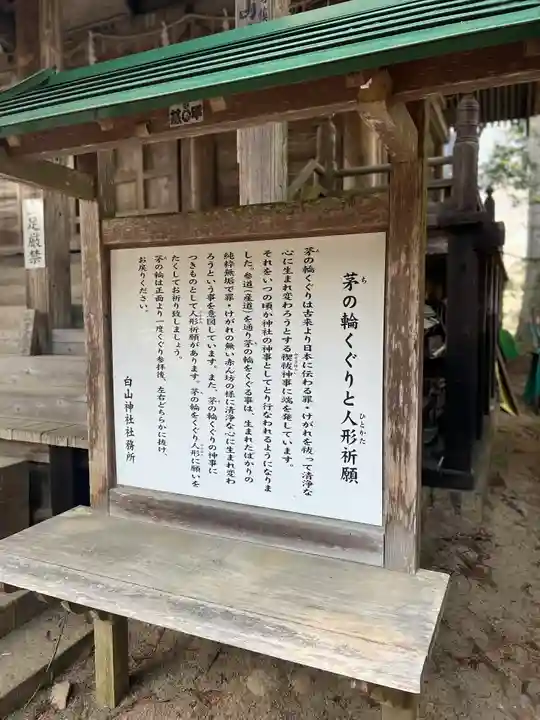 茅の輪くぐりと人形祈願
ち
ひとかた
茅の輪くぐりは古来より日本に伝わる罪・けがれを祓って清浄な
心に生まれ変わろうとする禊祓神事に端を発しています。
それをいつの頃か神社の神事としてとり行なわれるようになりま
した。参道(産道)を通り茅の輪をくぐる事は、生まれたばかりの
純粋無垢で罪・けがれの無い赤ん坊の様に清浄な心に生まれ変わ
ろうという事を意図しています。また、茅の輪くぐりの神事に
つきものとして人形祈願があります。茅の輪をくぐり人形に願いを
たくしてお祈り致しましょう。
茅の輪は正面より一度くぐり参拝後、左右どちらかに抜け、
お戻りください。
白山神社社務所
足厳禁